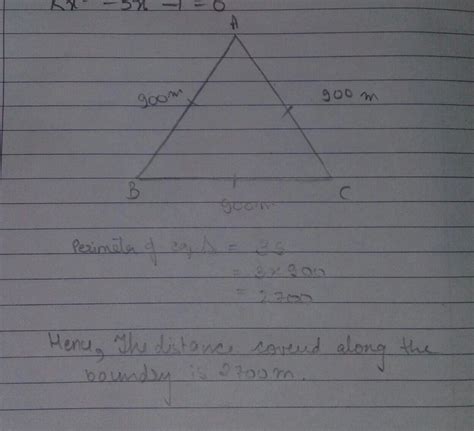 2x² - 5x - 1 = 0
A
900 m
900 m
B
C
900m
Perimeter of eq. Δ = 3S
= 3 x 900
= 2700
Hence, The distance coverd along the
boundry is 2700 m.